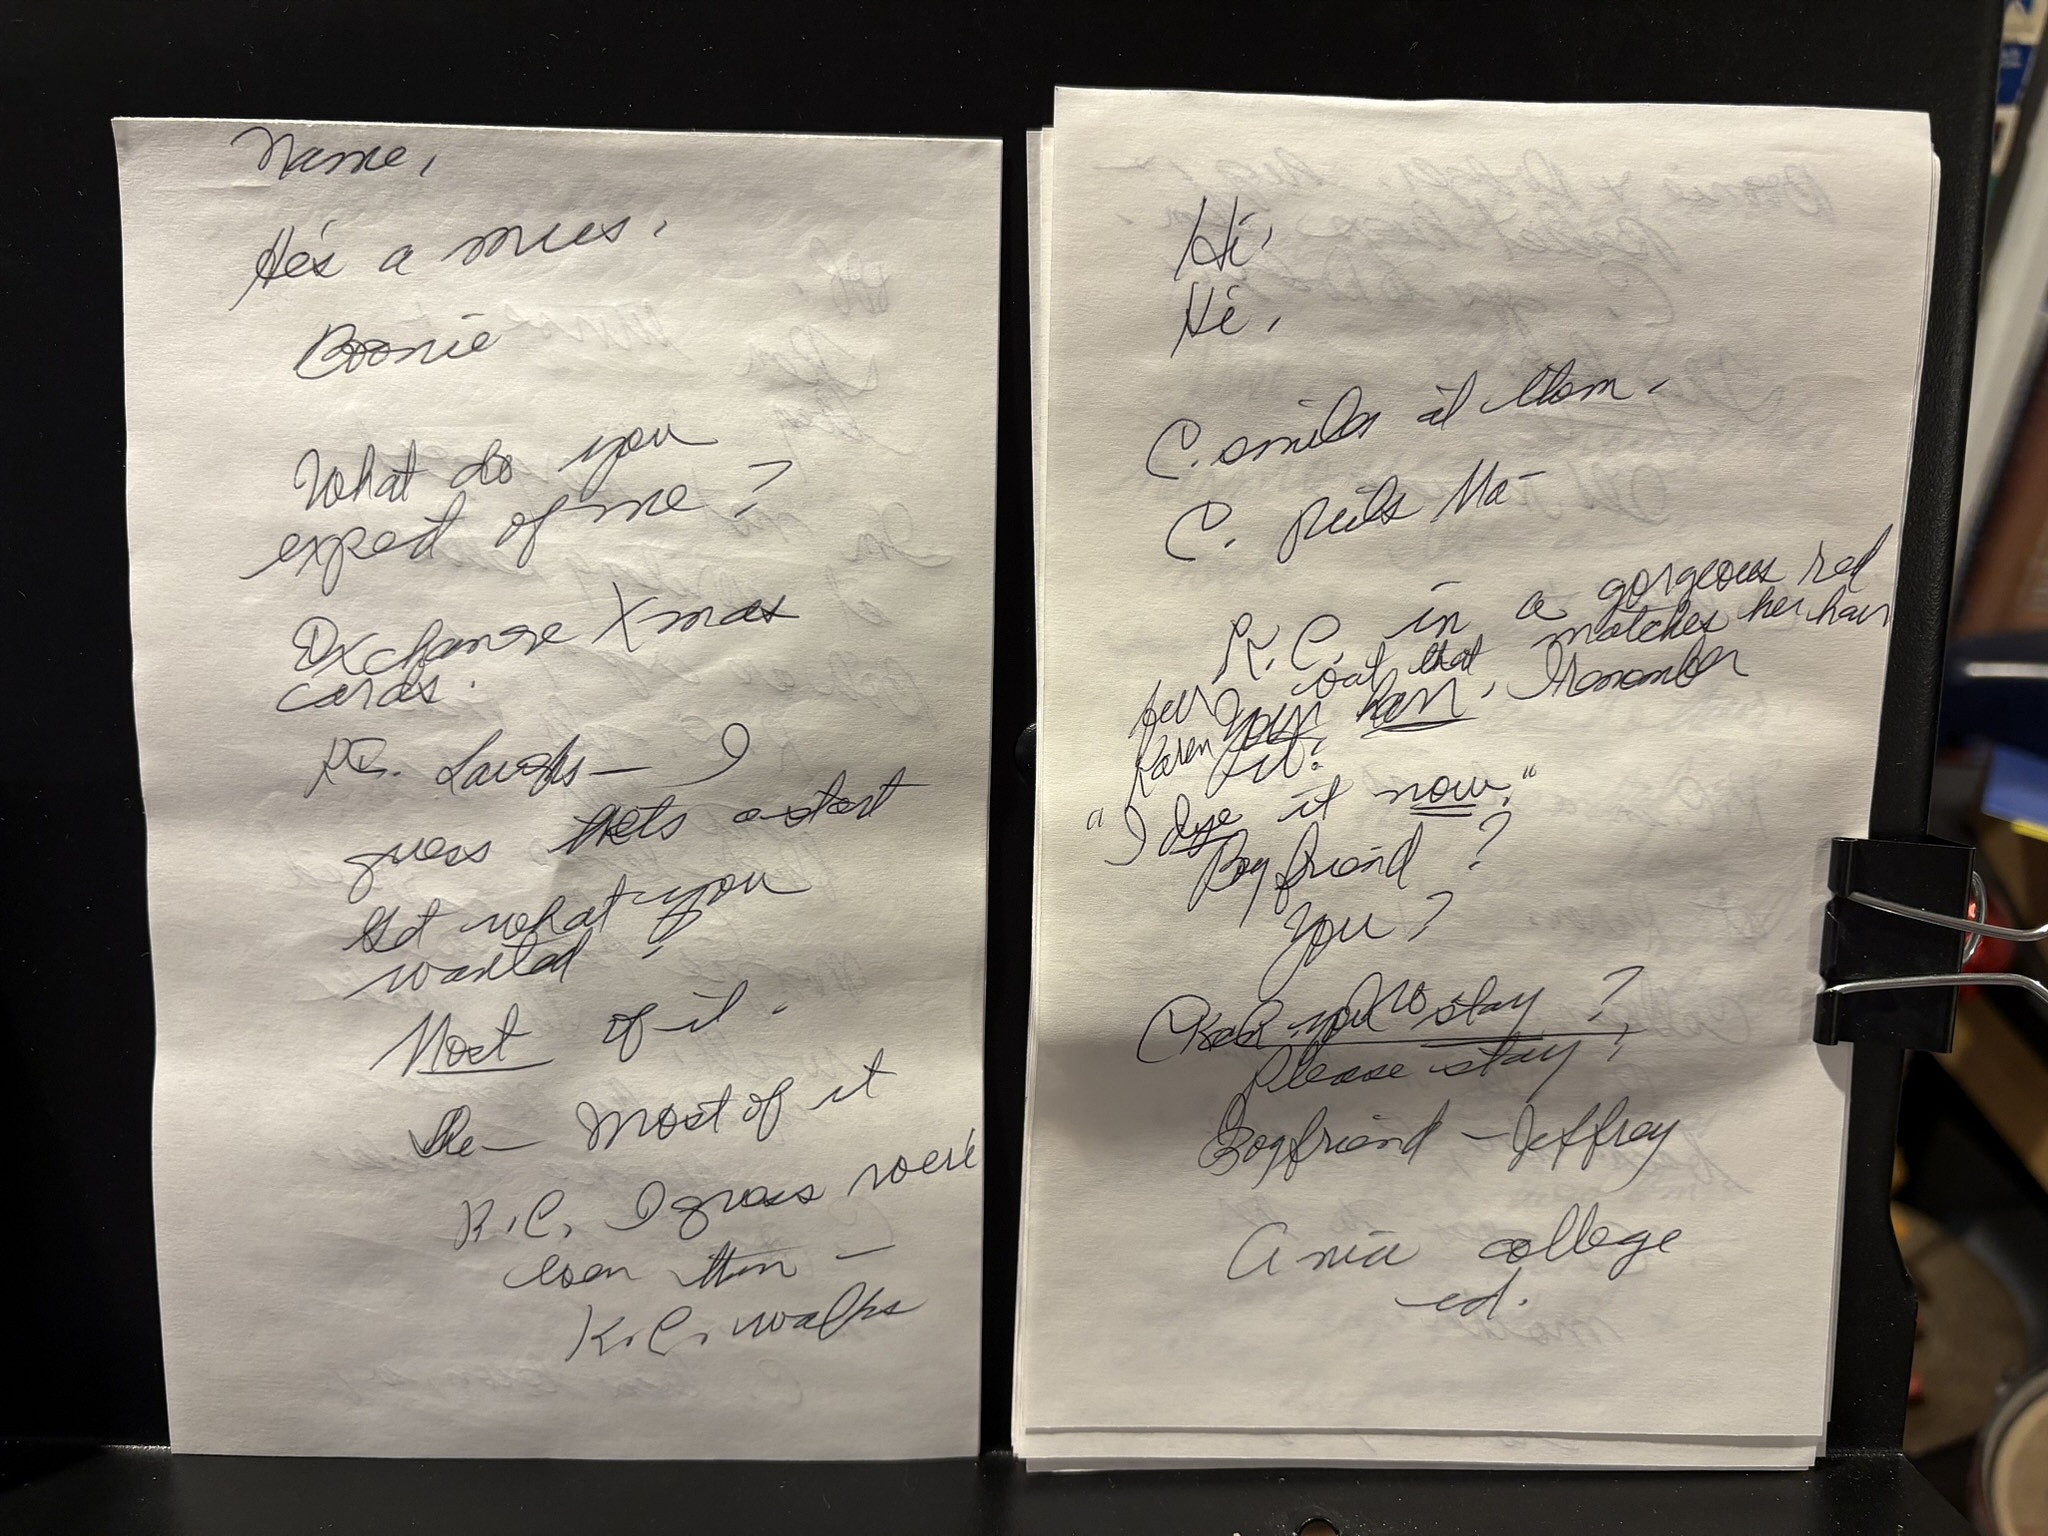 Name,
He's a mus.
Boonie
What do you
expect of me?
Exchange Xmas
cards.
K.C. Laughs — I
guess thats a start
Got what you
wanted?
Most of it.
She — Most of it
K.C. I guess we're
even then —
K.C. walks
Hi,
Hi,
C. smiles at them.
C. Ma —
K.C. in a gorgeous red
fur coat that matches her hair
Karen Your hair. I remember
it?
"I dye it now."
Boyfriend?
You?
stay?
Please stay?
Boyfriend — Jeffrey
A nice college
ed.